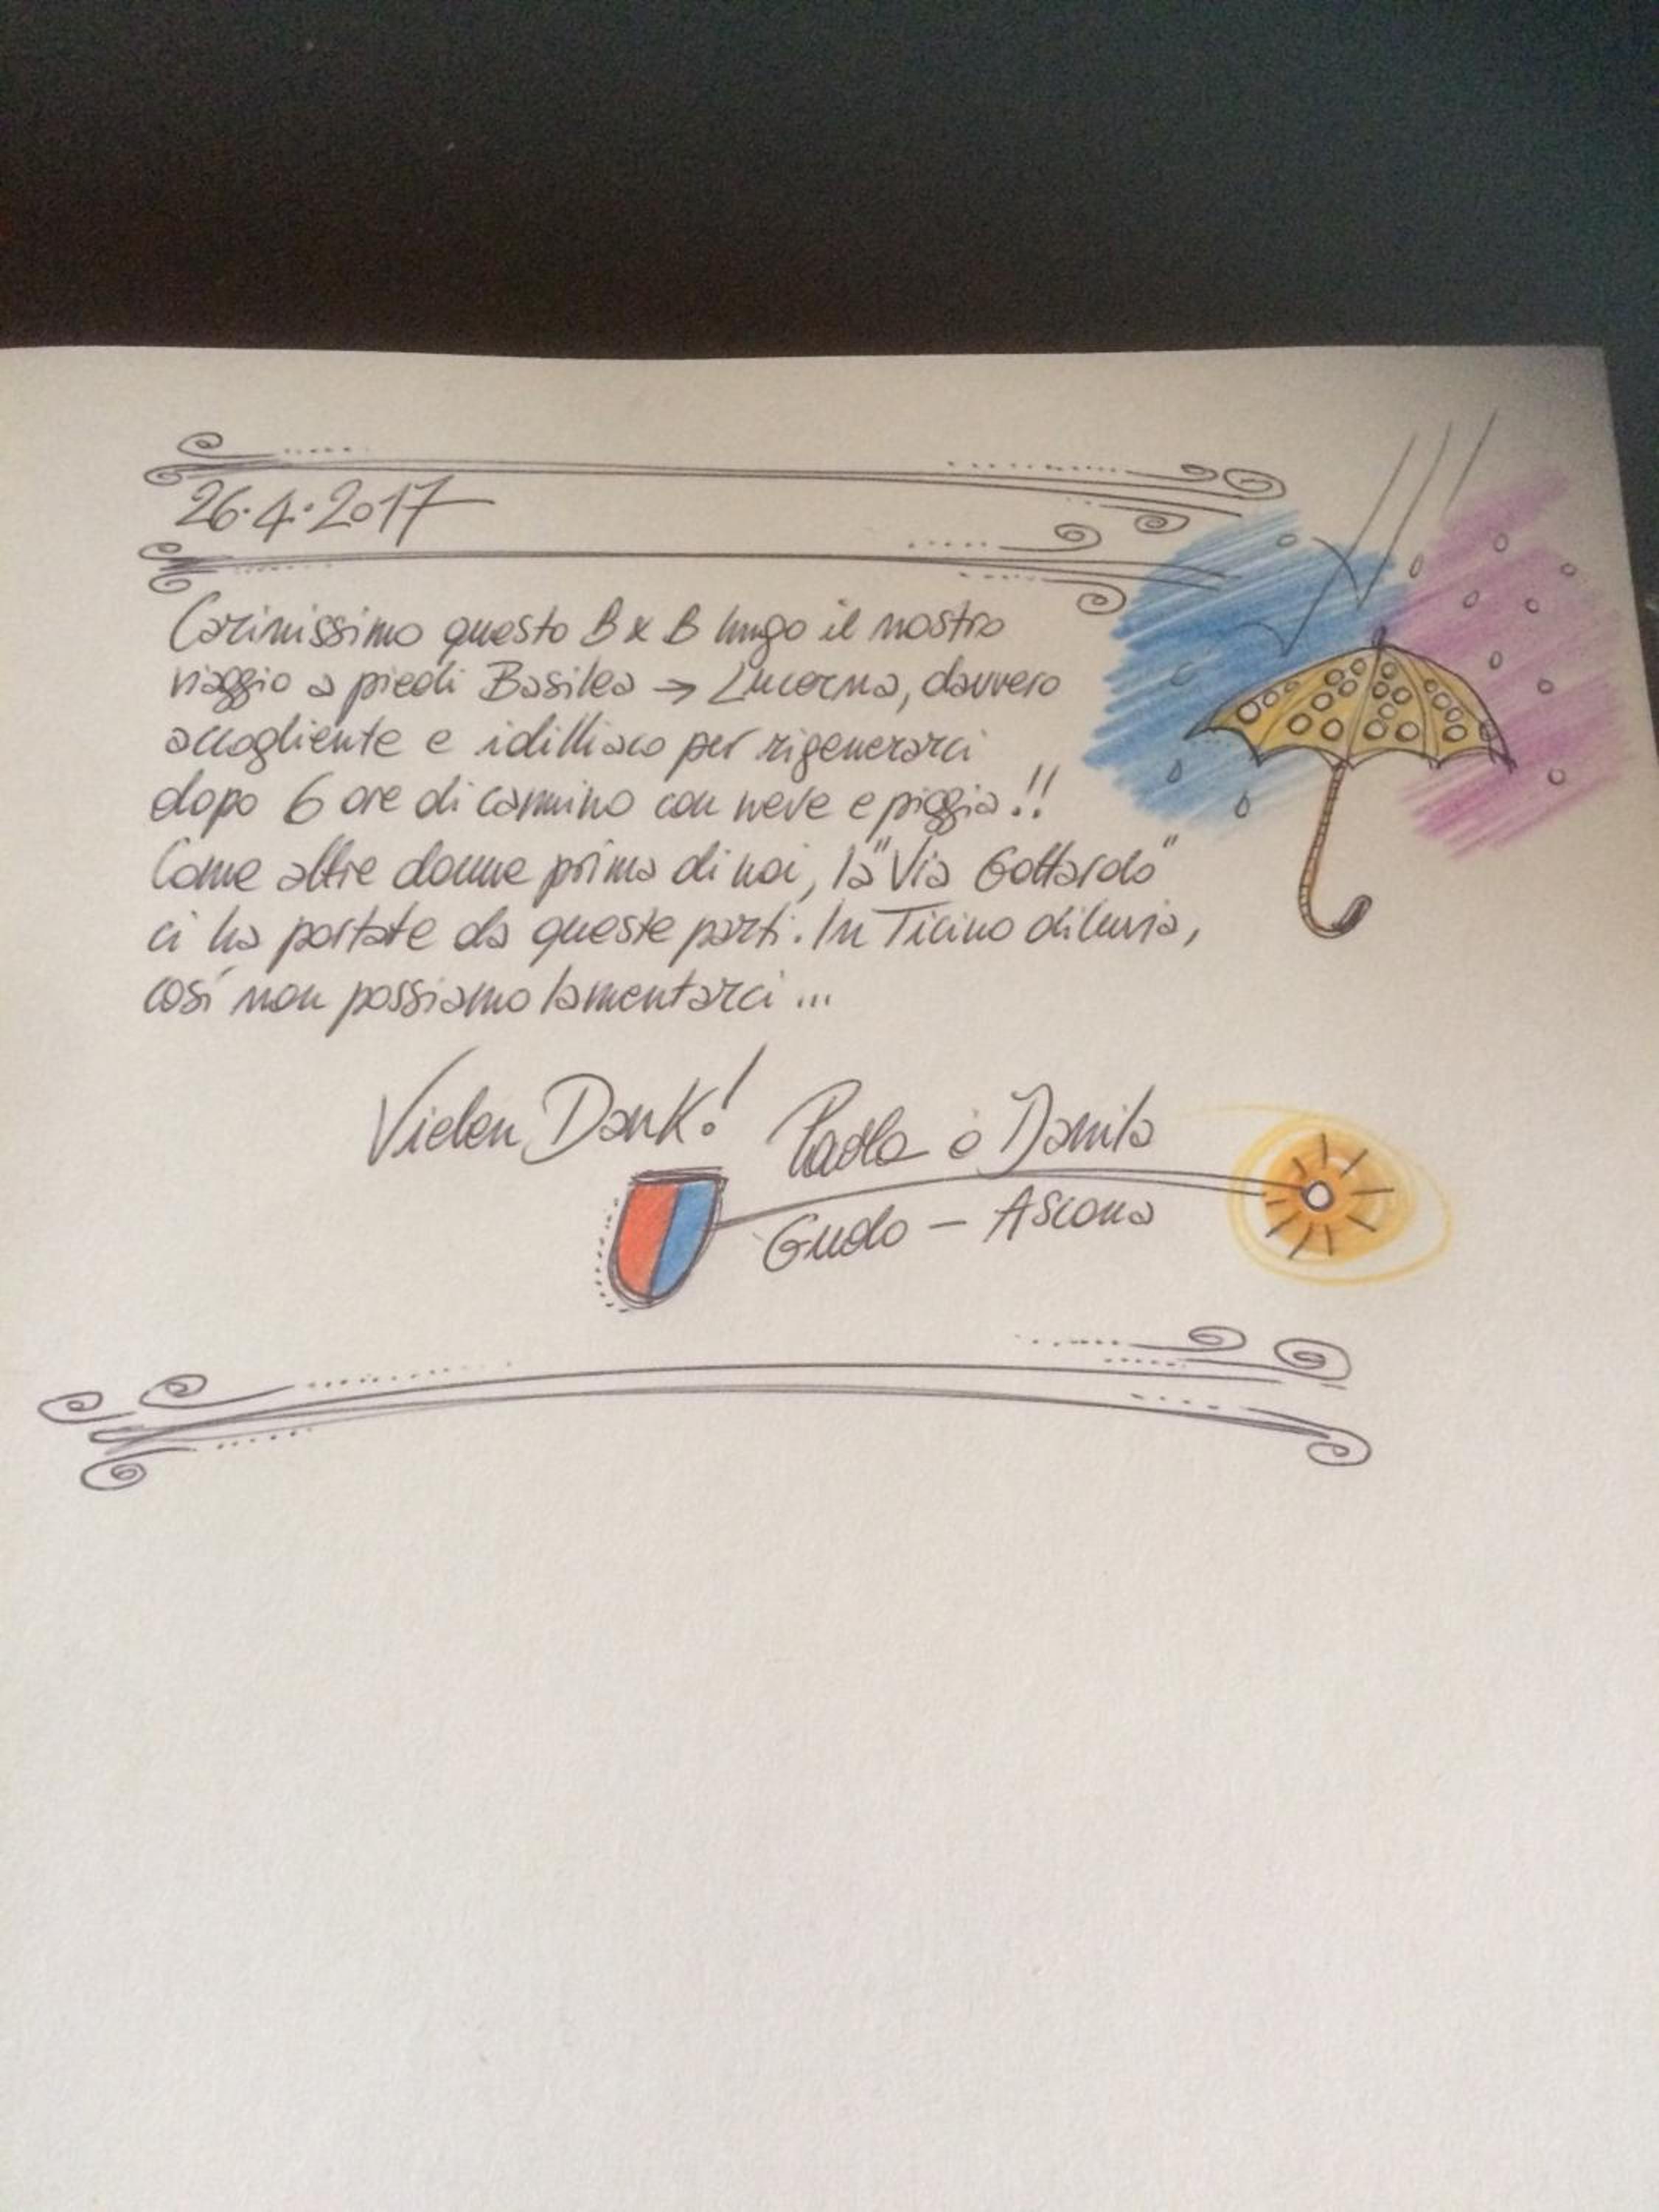 26.4.2017
Carinissimo questo B & B lungo il nostro
viaggio a piedi Basilea → Lucerna, davvero
accogliente e idilliaco per rigenerarci
dopo 6 ore di cammino con neve e pioggia!!
Come altre donne prima di noi, la "Via Gottardo"
ci ha portate da queste parti. In Ticino diluvia,
così non possiamo lamentarci...
Vielen Dank! Paola e Danila
Gudo - Ascona